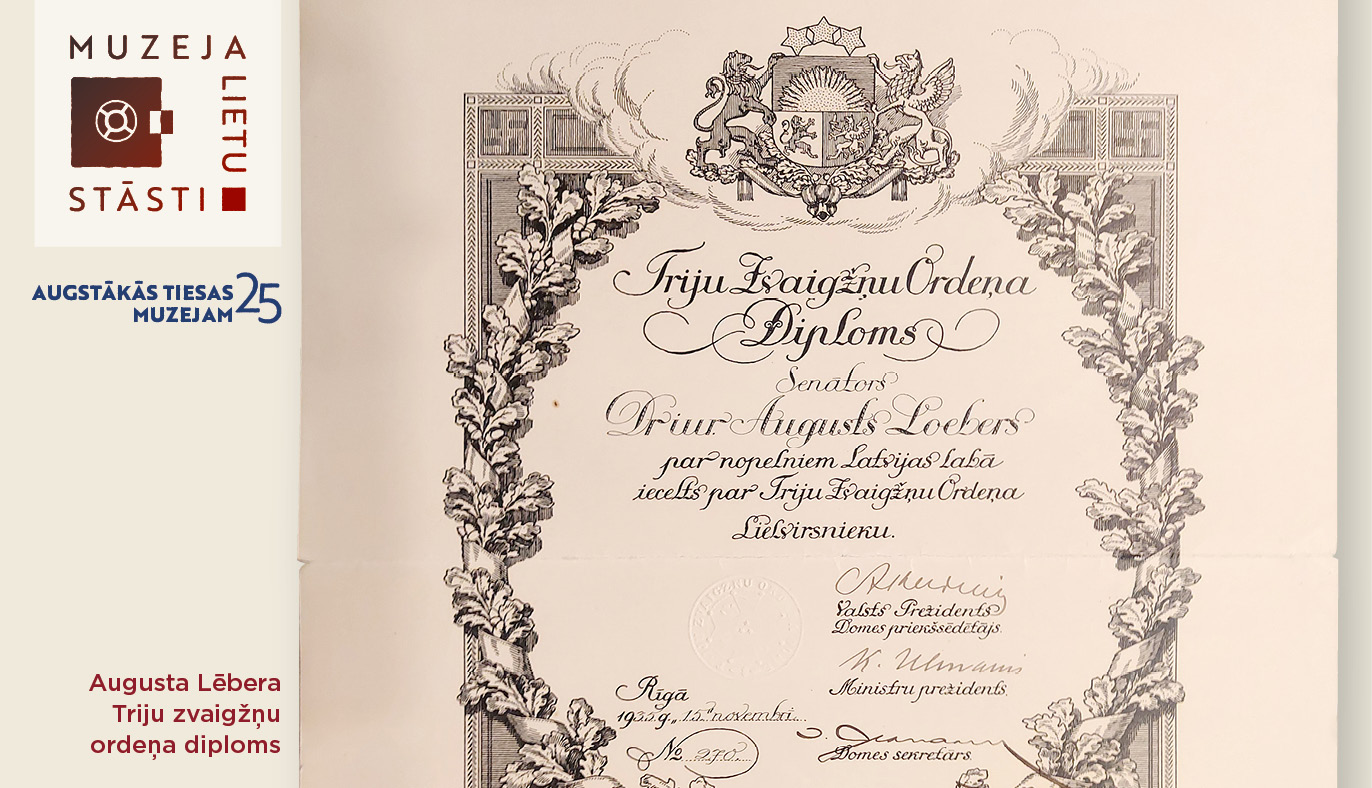 MUZEJA
LIETU
STĀSTI
AUGSTĀKĀS TIESAS
MUZEJAM 25
Augusta Lēbera
Triju zvaigžņu
ordeņa diploms
Triju Zvaigžņu Ordeņa
Diploms
Senātors
Dr iur. Augusts Loebers
par nopelniem Latvijas labā
iecelts par Triju Zvaigžņu Ordeņa
Lielvirsnieku.
Valsts Prezidents
Domes priekšsēdētājs.
K. Ulmanis
Ministru prezidents.
Rīgā
1935 g. „15" novembrī
№ 270.
Domes sekretārs.